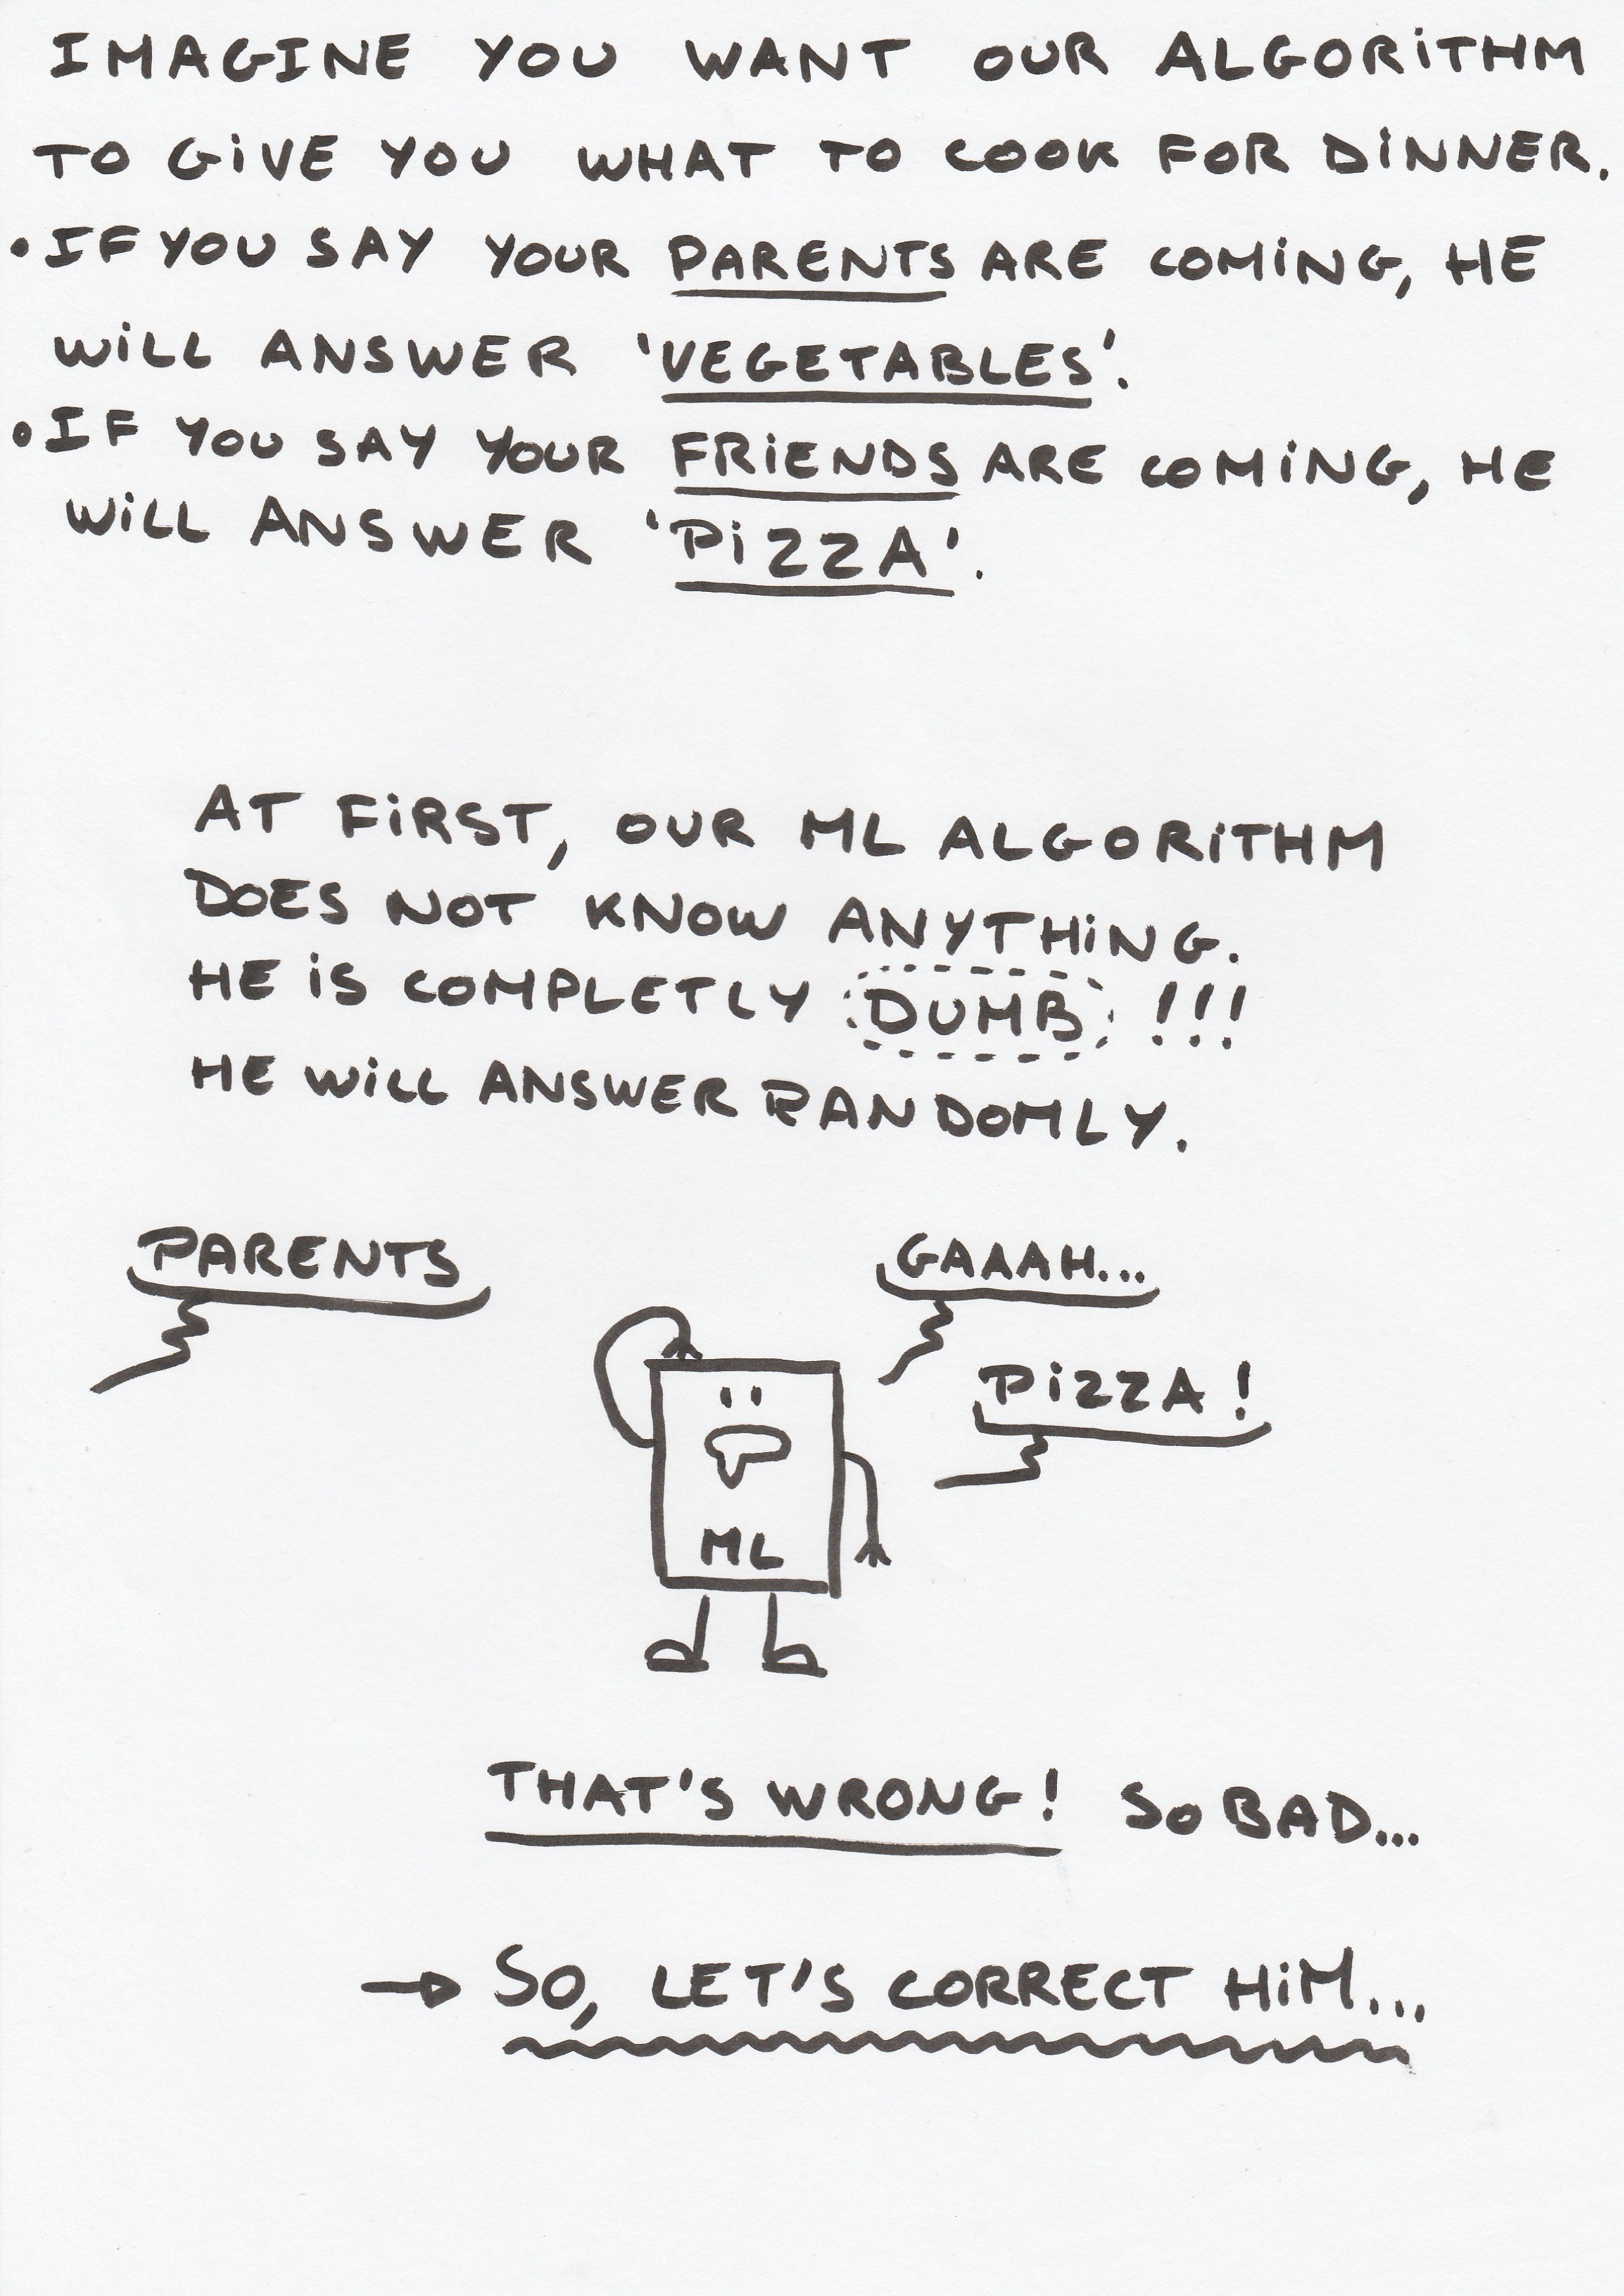 IMAGINE YOU WANT OUR ALGORITHM
TO GIVE YOU WHAT TO COOK FOR DINNER.
• IF YOU SAY YOUR PARENTS ARE COMING, HE
WILL ANSWER 'VEGETABLES'.
• IF YOU SAY YOUR FRIENDS ARE COMING, HE
WILL ANSWER 'PIZZA'.
AT FIRST, OUR ML ALGORITHM
DOES NOT KNOW ANYTHING.
HE IS COMPLETLY DUMB !!!
HE WILL ANSWER RANDOMLY.
PARENTS
GAAAH...
PIZZA !
ML
THAT'S WRONG! SO BAD...
→ SO, LET'S CORRECT HIM...